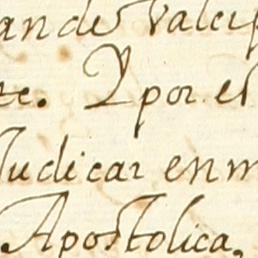 ande Valei
te. Y por el
Iudicar en m
Apostolica,